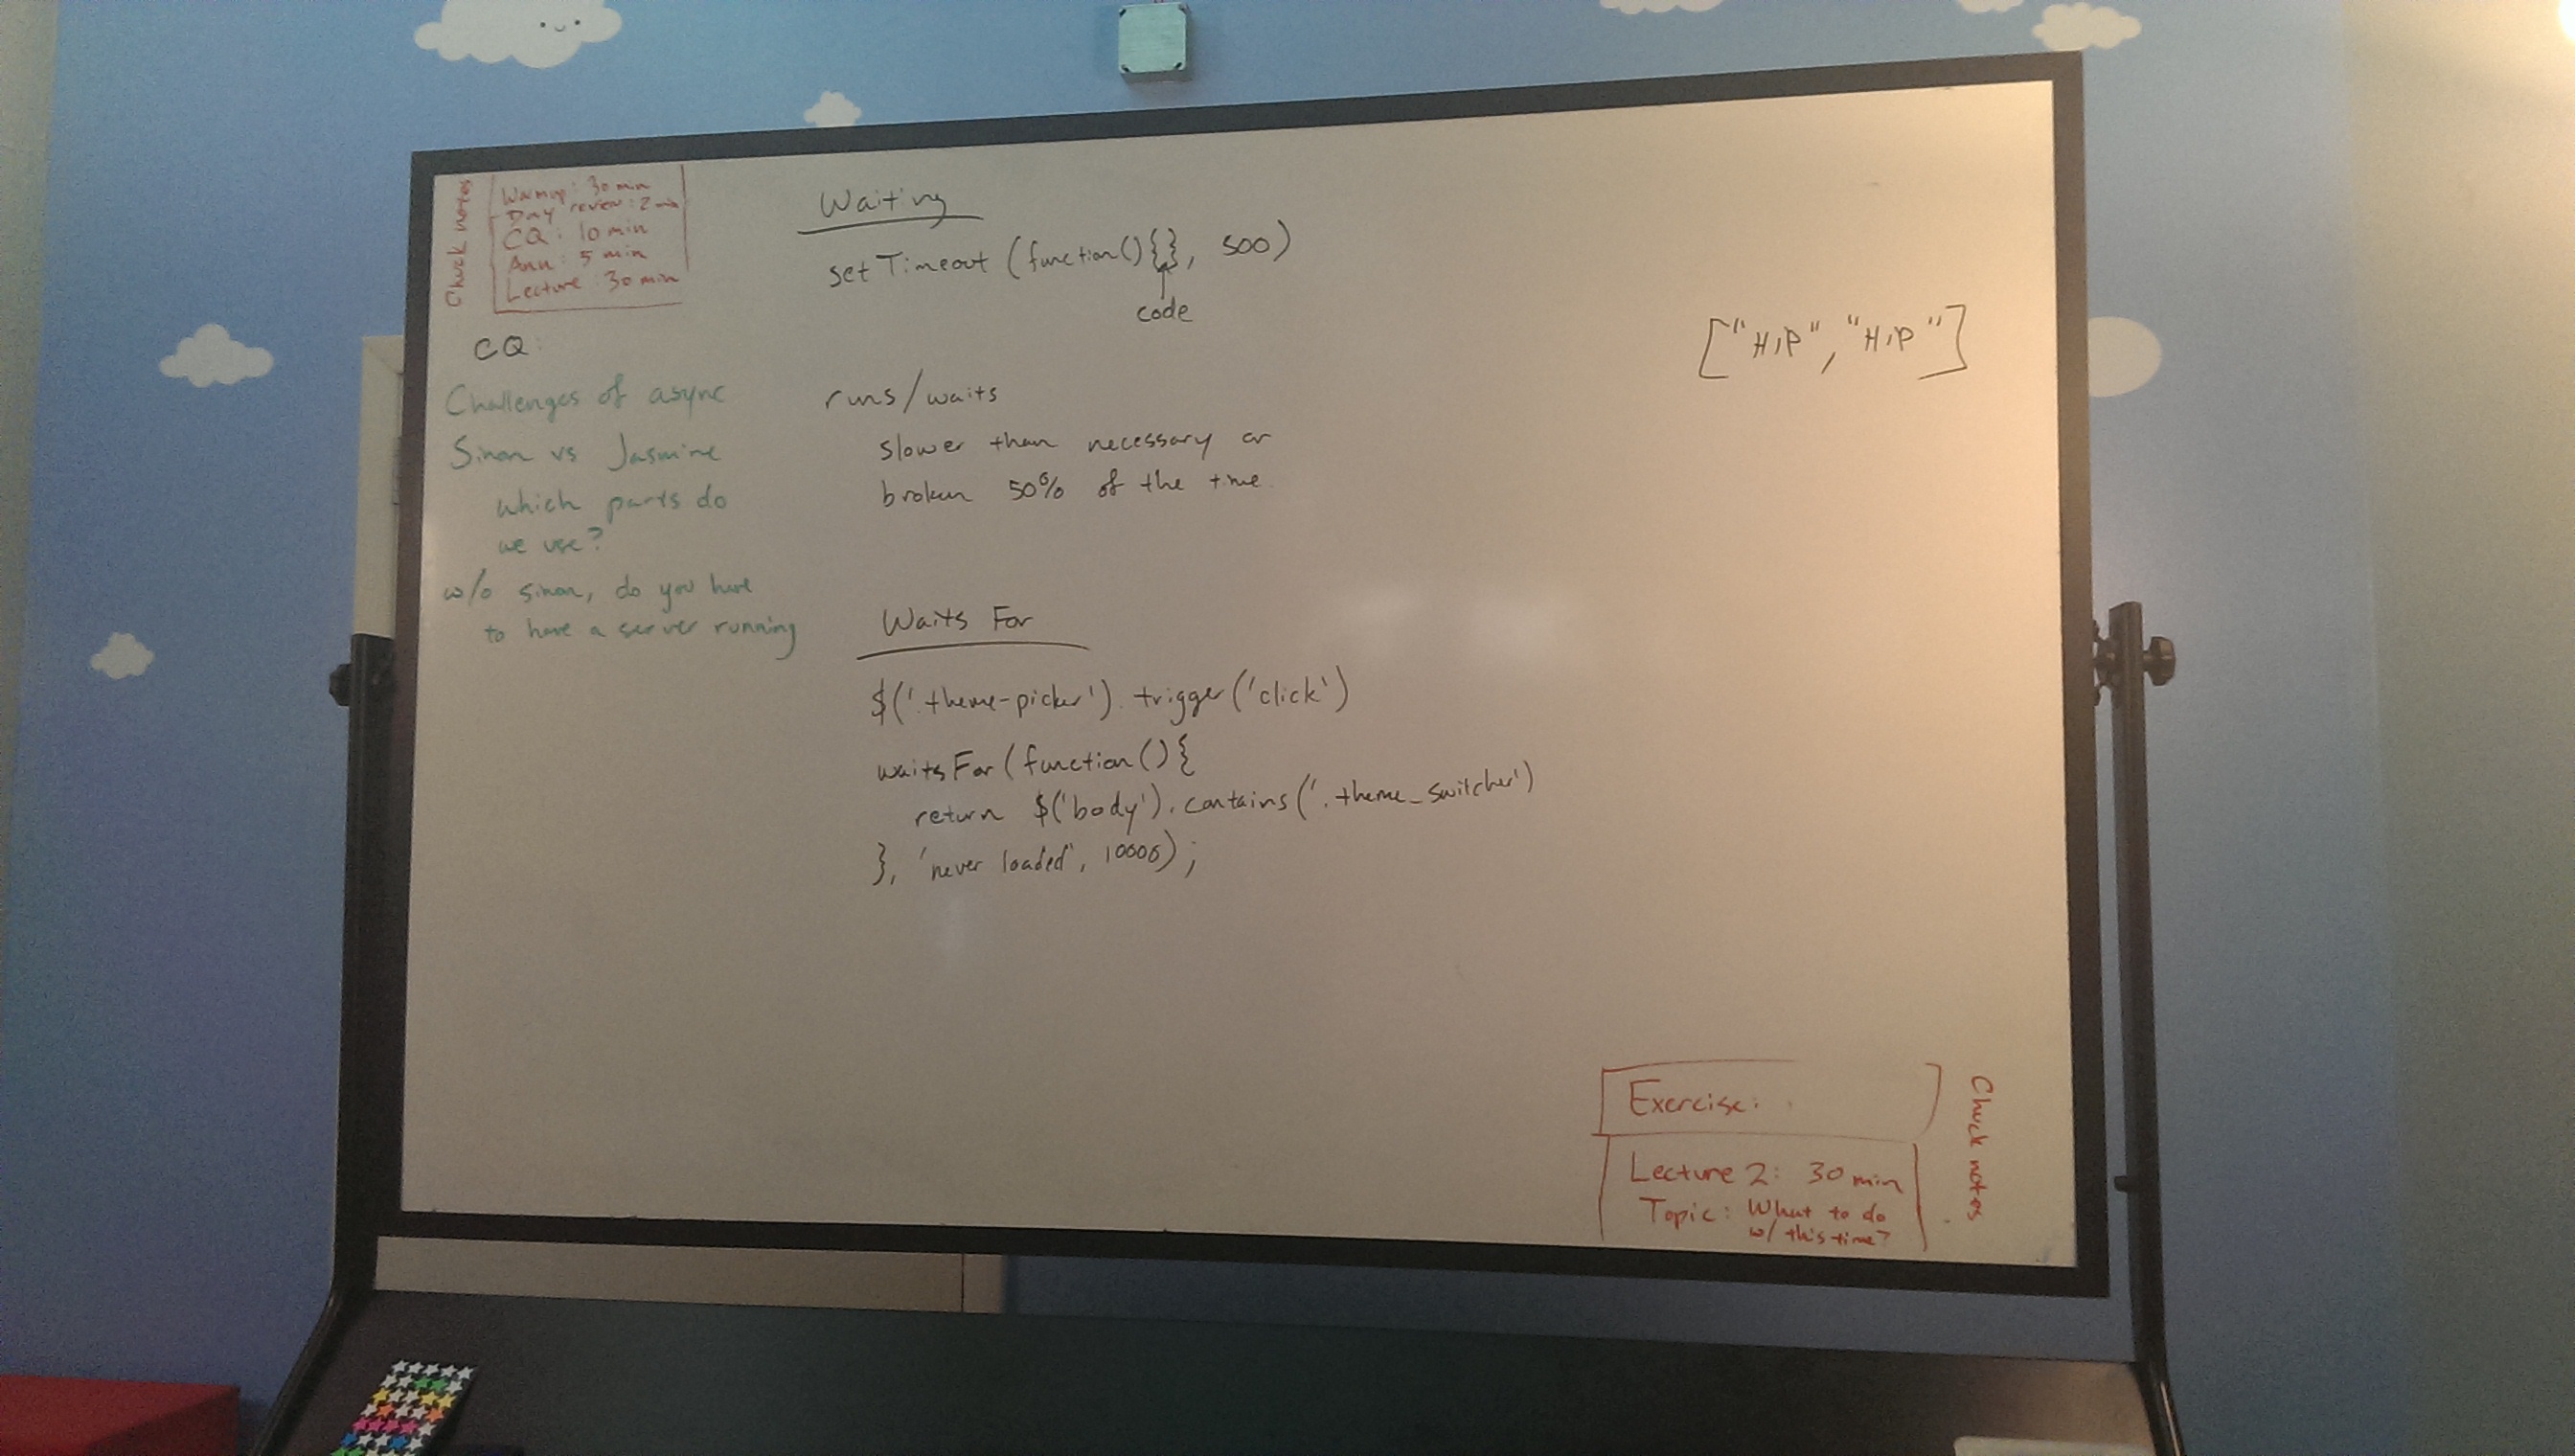 Chuck notes
Warmup: 30 min
Day review: 2 min
CQ: 10 min
Ann: 5 min
Lecture: 30 min
CQ:
Challenges of async
Sinon vs Jasmine
which parts do
we use?
w/o sinon, do you have
to have a server running
Waiting
setTimeout (function(){}, 500)
code
runs/waits
slower than necessary or
broken 50% of the time.
Waits For
$('.theme-picker').trigger('click')
waitsFor(function(){
return $('body').contains('.theme_switcher')
}, 'never loaded', 10000);
["HIP", "HIP"]
Exercise:
Lecture 2: 30 min
Topic: What to do
w/ this time?
Chuck notes